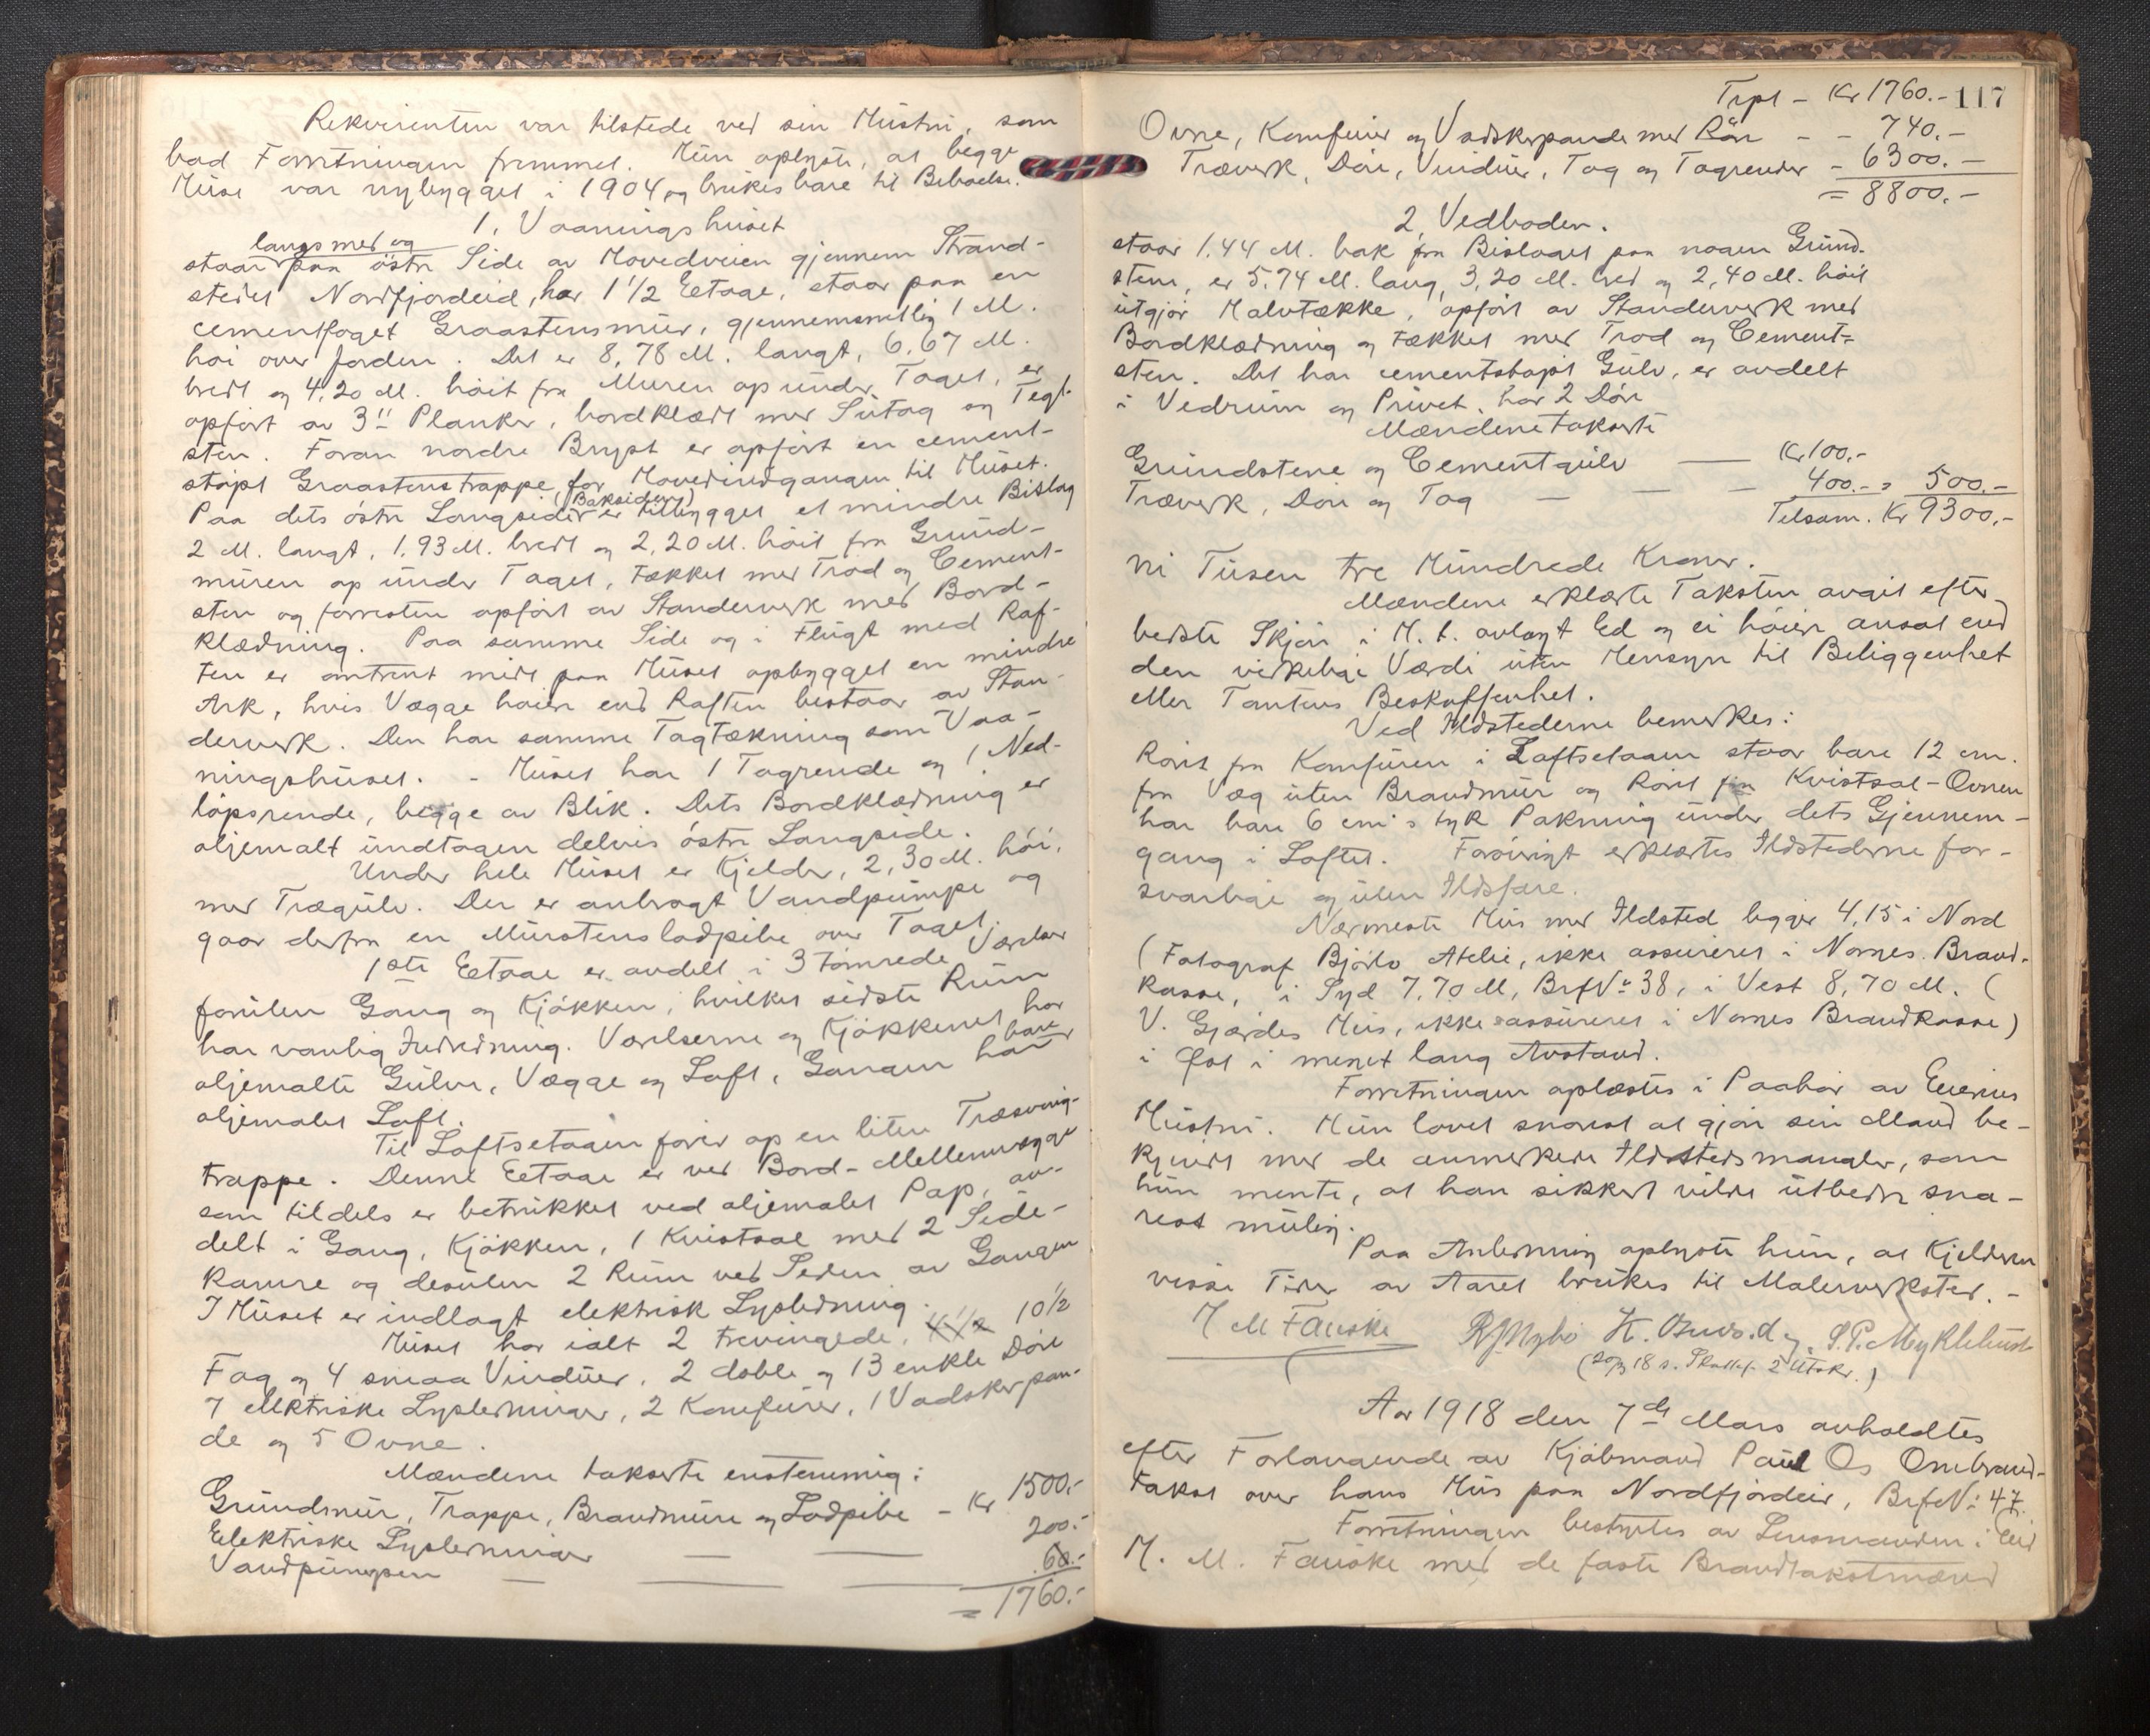 Rekvirenten var tilstede ved sin Hustru, som
bad Forretningen fremmet. Hun oplyste, at begge
Huse var nybygget i 1904 og brukes bare til Beboelse.
1. Vaaningshuset
langs med og
staar paa östre Side av Hovedveien gjennem Strand-
stedet Nordfjordeid, har 1 1/2 Eetage, staar paa en
cementfuget Graastensmur, gjennemsnitlig 1 M.
höi over Jorden. Det er 8,78 M. langt, 6,67 M.
bredt og 4,20 M. höit fra Muren op under Taget, er
opfört av 3" Planker, bordklædt med Sutag og Tegl-
sten. Foran nordre Bryst er opfört en cement-
stöpt Graastenstrappe for Hovedindgangen til Huset.
(Baksiden)
Paa dets östre Langside er tilbygget et mindre Bislag
2 M. langt, 1,93 M. bredt og 2,20 M. höit fra Grund-
muren op under Taget, tækket med Trod og Cement-
sten og forresten opfört av Standerverk med Bord-
klædning. Paa samme Side og i Flugt med Raf-
ten er omtrent midt paa Huset opbygget en mindre
Ark, hvis Vægge höiere end Raften bestaar av Stan-
derverk. Den har samme Tagtækning som Vaa-
ningshuset. - Huset har 1 Tagrende og 1 Ned-
löpsrende, begge av Blik. Dets Bordklædning er
oljemalt undtagen delvis östre Langside.
Under hele Huset er Kjelder, 2,30 M. höi,
med Trægulv. Der er anbragt Vandpumpe og
gaar derfra en Murstensladpibe over Taget.
1ste Eetage er avdelt i 3 tömrede Værelser
foruten Gang og Kjökken, hvilket sidste Rum
har vanlig Indredning. Værelserne og Kjökkenet har
oljemalte Gulve, Vægge og Loft, Gangen har bare
oljemalet Loft.
Til Loftsetagen förer op en liten Træsving-
trappe. Denne Eetage er ved Bord-Mellemvægge
som tildels er betrukket ved oljemalet Pap, av-
delt i Gang, Kjökken, 1 Kvistsal med 2 Side-
kamre og desuten 2 Rum ved Siden av Gangen
I Huset er indlagt elektrisk Lysledning.
Huset har ialt 2 trevingede, 10 1/2
Fag og 4 smaa Vinduer, 2 doble og 13 enkle Döre
7 elektriske Lysledninger, 2 Komfurer, 1 Vadskepan-
de og 5 Ovne.
Mændene takserte enstemmig:
Grundmur, Trappe, Brandmure og Ladpibe - Kr 1500.-
Elektriske Lysledninger 200.-
Vandpumpen 60.-
= 1760.-
Trpt - Kr 1760.- 117
Ovne, Komfurer og Vadskepande med Rör - - 740.-
Træverk, Döre, Vinduer, Tag og Tagrender - 6300.-
= 8800.-
2. Vedboden.
staar 1,44 M. bak fra Bislaget paa nogen Grund-
stene, er 5,74 M. lang, 3,20 M. bred og 2,40 M. höit
utgjör Halvtække, opfört av Standerverk med
Bordklædning og tækket med Trod og Cement-
sten. Det har cementstöpt Gulv, er avdelt
i Vedrum og Privet, har 2 Döre
Mændene takserte
Grundstene og Cementgulv Kr 100.-
Træverk, Döre og Tag 400.- = 500.-
Tilsam. Kr 9300.-
Ni Tusen tre Hundrede Kroner.
Mændene erklærte Taksten avgit efter
bedste Skjön i H. t. avlagt Ed og ei höiere ansat end
den virkelige Værdi uten Hensyn til Beliggenhet
eller Tomtens Beskaffenhet.
Ved Ildstederne bemerkes:
Röret fra Komfuren i Loftsetagen staar bare 12 cm.
fra Væg uten Brandmur og Röret fra Kvistsal-Ovnen
har bare 6 cm's tyk Pakning under dets Gjennem-
gang i Loftet. Forövrigt erklærtes Ildstederne for-
svarlige og uten Ildsfare.
Nærmeste Hus med Ildsted ligger 4,15 i Nord
(Fotograf Björlo Atelie, ikke assureret i Norges Brand-
kasse, i Syd 7,70 M, Brf No 38, i Vest 8,70 M. (
V. Gjærdes Hus, ikke assureret i Norges Brandkasse)
i Öst i meget lang Avstand.
Forretningen oplæstes i Paahör av Eierens
Hustru. Hun lovet snarest at gjöre sin Mand be-
kjendt med de anmerkede Ildstedsmangler, som
hun mente, at han sikkert vilde utbedre sna-
rest mulig.
Paa Anledning oplyste hun, at Kjelderen
visse Tider av Aaret brukes til Malerverksted. -
H M Fauske R J Nybö S. P. Myklebust
(20/3 18 s. 2 Utskr.)
Aar 1918 den 7de Mars avholdtes
efter Forlangende av Kjöbmand Paul Os Ombrand-
takst over hans Hus paa Nordfjordeid, Brf No 47.
Forretningen bestyrtes av Lensmanden i Eid
H. M. Fauske med de faste Brandtakstmænd